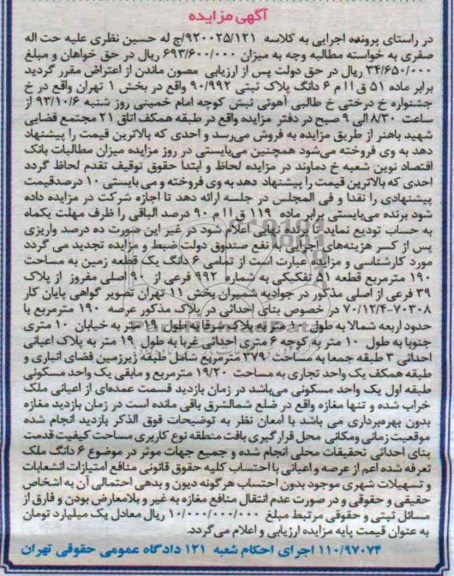 آگهی مزایده
در راستای پرونده اجرایی به کلاسه ۹۲۰۰۲۵/۱۲۱/ج له حسین نظری علیه حت اله
صفری به خواسته مطالبه وجه به میزان ۶۹۳/۶۰۰/۰۰۰ ریال در حق خواهان و مبلغ
۳۴/۶۵۰/۰۰۰ ریال در حق دولت پس از ارزیابی مصون ماندن از اعتراض مقرر گردید
برابر ماده ۵۱ ق اا م ۶ دانگ پلاک ثبتی ۹۰/۹۹۲ واقع در بخش ۱ تهران واقع در خ
جشنواره خ درختی خ طالبی آهونی نبش کوچه امام خمینی روز شنبه ۹۳/۱۰/۶ از
ساعت ۸/۳۰ الی ۹ صبح در دفتر مزایده واقع در طبقه همکف اتاق ۲۱ مجتمع قضایی
شهید باهنر از طریق مزایده به فروش می‌رسد و احدی که بالاترین قیمت را پیشنهاد
دهد به وی فروخته می‌شود همچنین می‌بایستی در روز مزایده میزان مطالبات بانک
اقتصاد نوین شعبه خ دماوند در مزایده لحاظ و ابتدا حقوق توقیف تقدم لحاظ گردد
احدی که بالاترین قیمت را پیشنهاد دهد به وی فروخته و می بایستی ۱۰ درصدقیمت
پیشنهادی را نقدا و فی المجلس در جلسه ارائه دهد تا اجازه شرکت در مزایده داده
شود برنده می‌بایستی برابر ماده ۱۱۹ ق اا م ۹۰ درصد الباقی را ظرف مهلت یکماه
به حساب تودیع نماید تا برنده نهایی اعلام شود در غیر این صورت ده درصد واریزی
پس از کسر هزینه‌های اجرایی به نفع صندوق دولت ضبط و مزایده تجدید می گردد
مورد کارشناسی و مزایده عبارت است از تمامی ۶ دانگ یک قطعه زمین به مساحت
۱۹۰ مترمربع قطعه ۵۱ تفکیکی به شماره ۹۹۲ فرعی از ۹۰ اصلی مفروز از پلاک
۳۹ فرعی از اصلی مذکور در جوادیه شمیران بخش ۱۱ تهران تصویر گواهی پایان کار
۷۰۳۰۸-۷۰/۱۲/۴ در خصوص بنای احداثی در پلاک مذکور عرصه ۱۹۰ مترمربع با
حدود اربعه شمالا به طول ۱۰ متر به پلاک شرقا به طول ۱۹ متر به خیابان ۱۰ متری
جنوبا به طول ۱۰ متر به کوچه ۶ متری احداثی غربا به طول ۱۹ متر به پلاک اعیانی
احداثی ۳ طبقه جمعا به مساحت ۳۷۹ مترمربع شامل طبقه زیرزمین فضای انباری و
طبقه همکف یک واحد تجاری به مساحت ۱۹/۲۰ مترمربع و مابقی یک واحد مسکونی
طبقه اول یک واحد مسکونی می‌باشد در زمان بازدید قسمت عمده‌ای از اعیانی ملک
خراب شده و تنها مغازه واقع در ضلع شمالشرق باقی مانده است در زمان بازدید مغازه
بدون بهره‌برداری می باشد با امعان نظر به توضیحات فوق الذکر بازدید انجام شده
موقعیت زمانی ومکانی محل قرارگیری بافت منطقه نوع کاربری مساحت کیفیت قدمت
بنای احداثی تحقیقات محلی انجام شده و جمیع جهات موثر در موضوع ۶ دانگ ملک
تعرفه شده اعم از عرصه و اعیانی با احتساب کلیه حقوق قانونی منافع امتیازات انشعابات
و تسهیلات شهری موجود بدون احتساب هرگونه دیون و بدهی احتمالی آن به اشخاص
حقیقی و حقوقی و در صورت عدم انتقال منافع مغازه به غیر و بلامعارض بودن و فارق از
مسائل ثبتی و حقوقی مرتبط مبلغ ۱۰/۰۰۰/۰۰۰/۰۰۰ ریال معادل یک میلیارد تومان
به عنوان قیمت پایه مزایده ارزیابی و اعلام می‌گردد.
۱۱۰/۹۷۰۷۴ اجرای احکام شعبه ۱۲۱ دادگاه عمومی حقوقی تهران